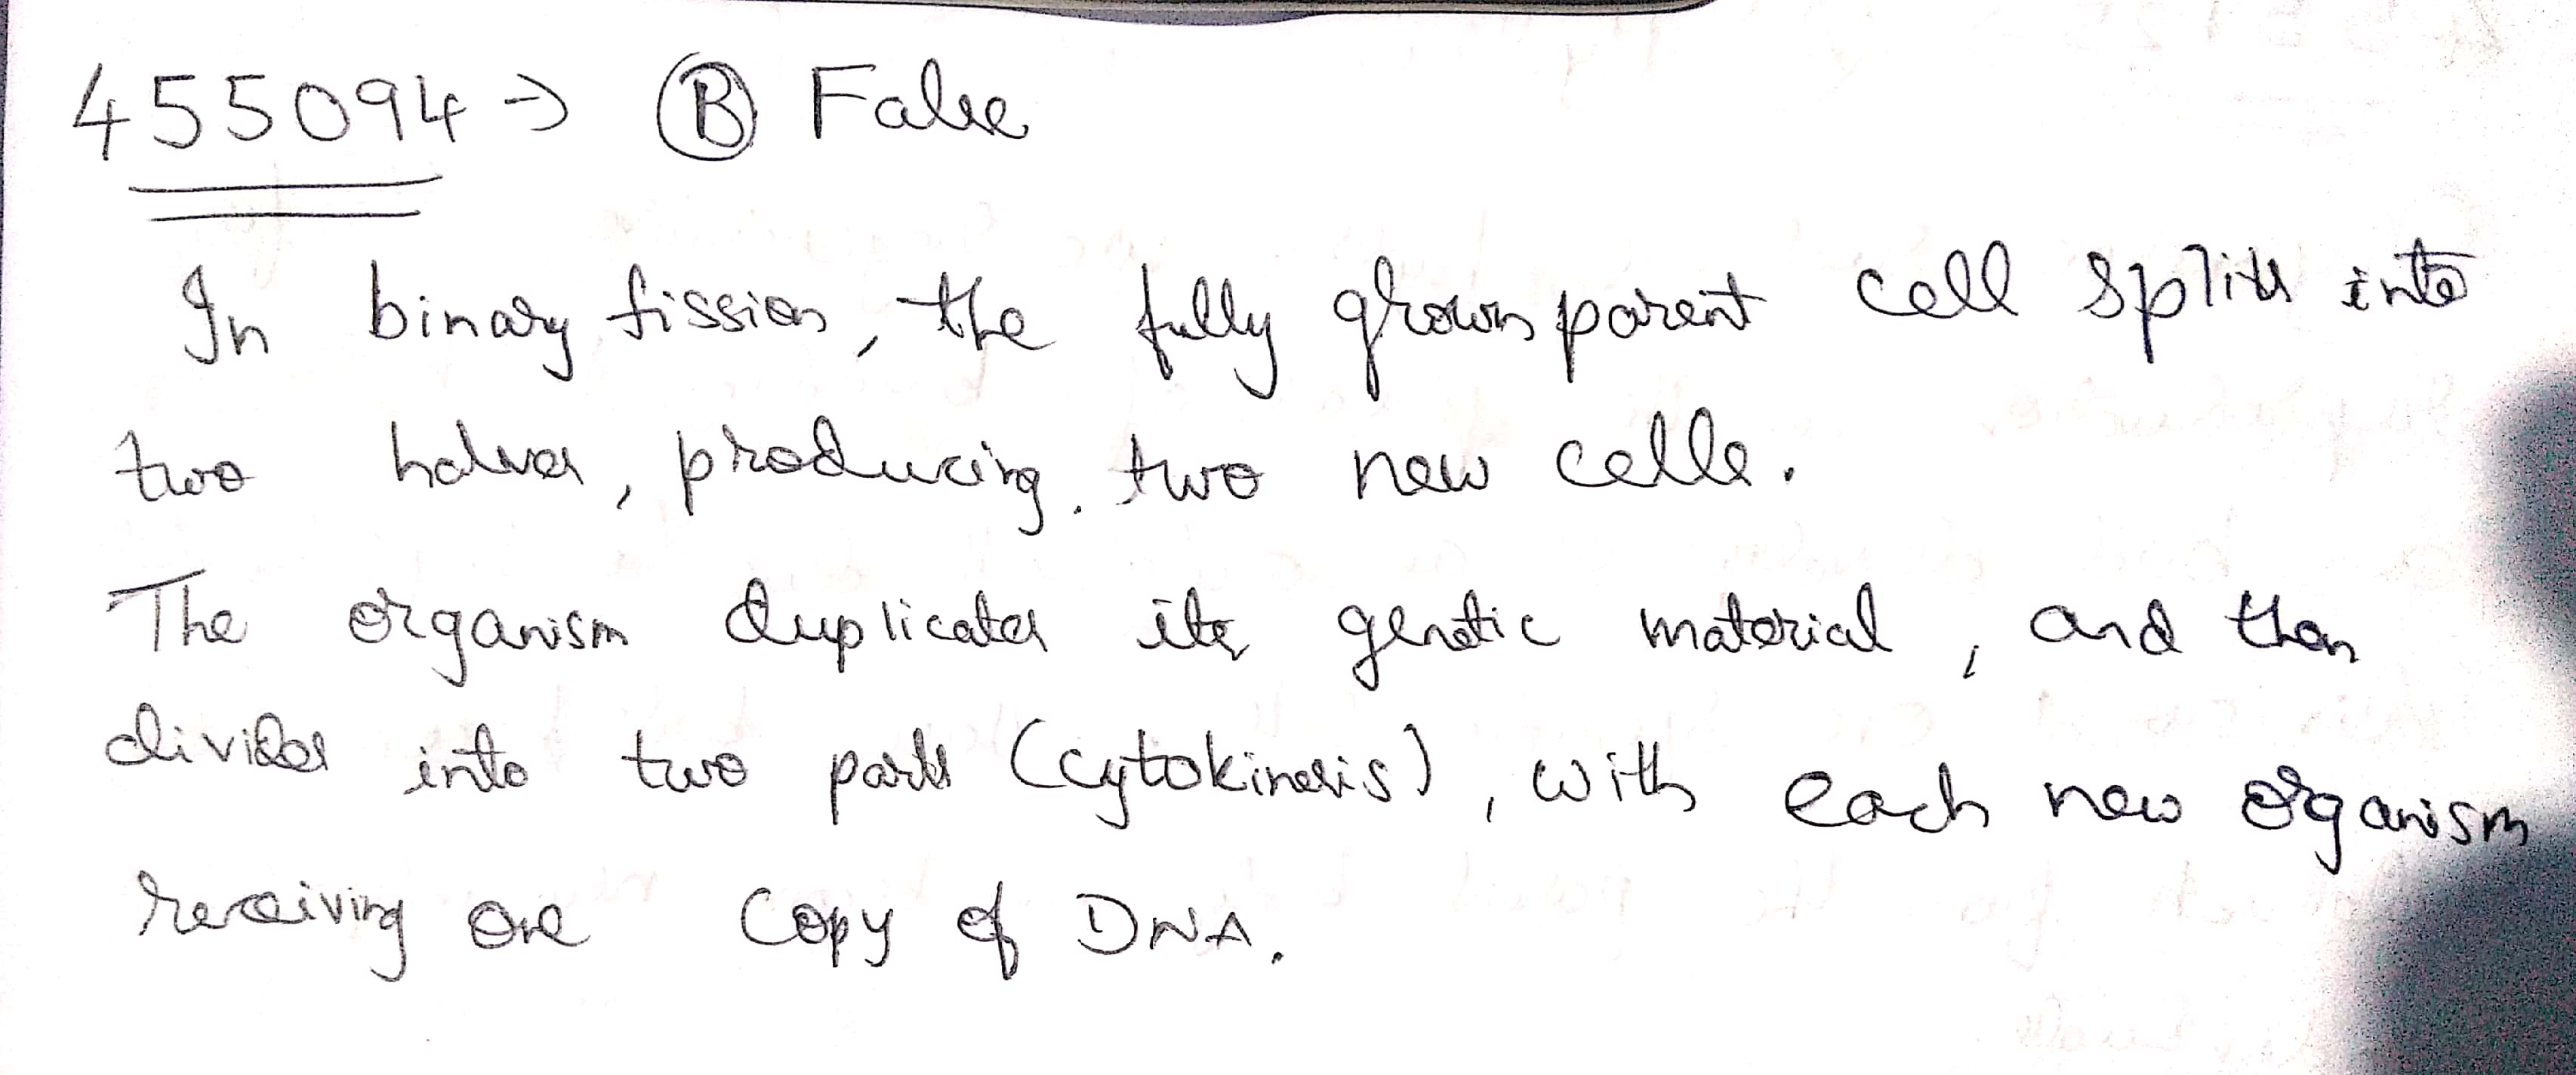 455094 → B False
In binary fission, the fully grown parent cell splits into
two halves, producing. two new cells.
The organism duplicates its genetic material, and then
divides into two parts (cytokinesis), with each new organism
receiving one copy of DNA.